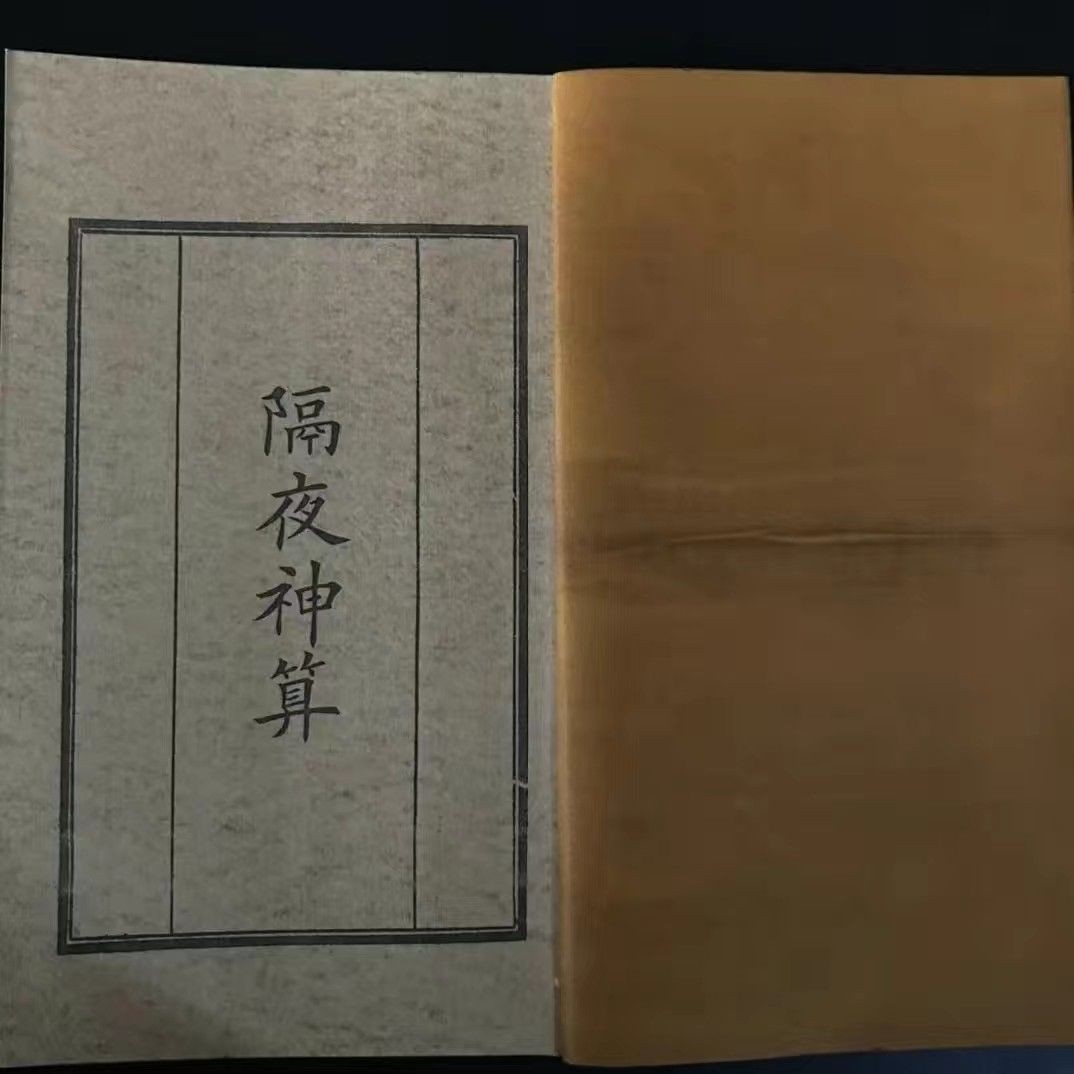 隔夜神算